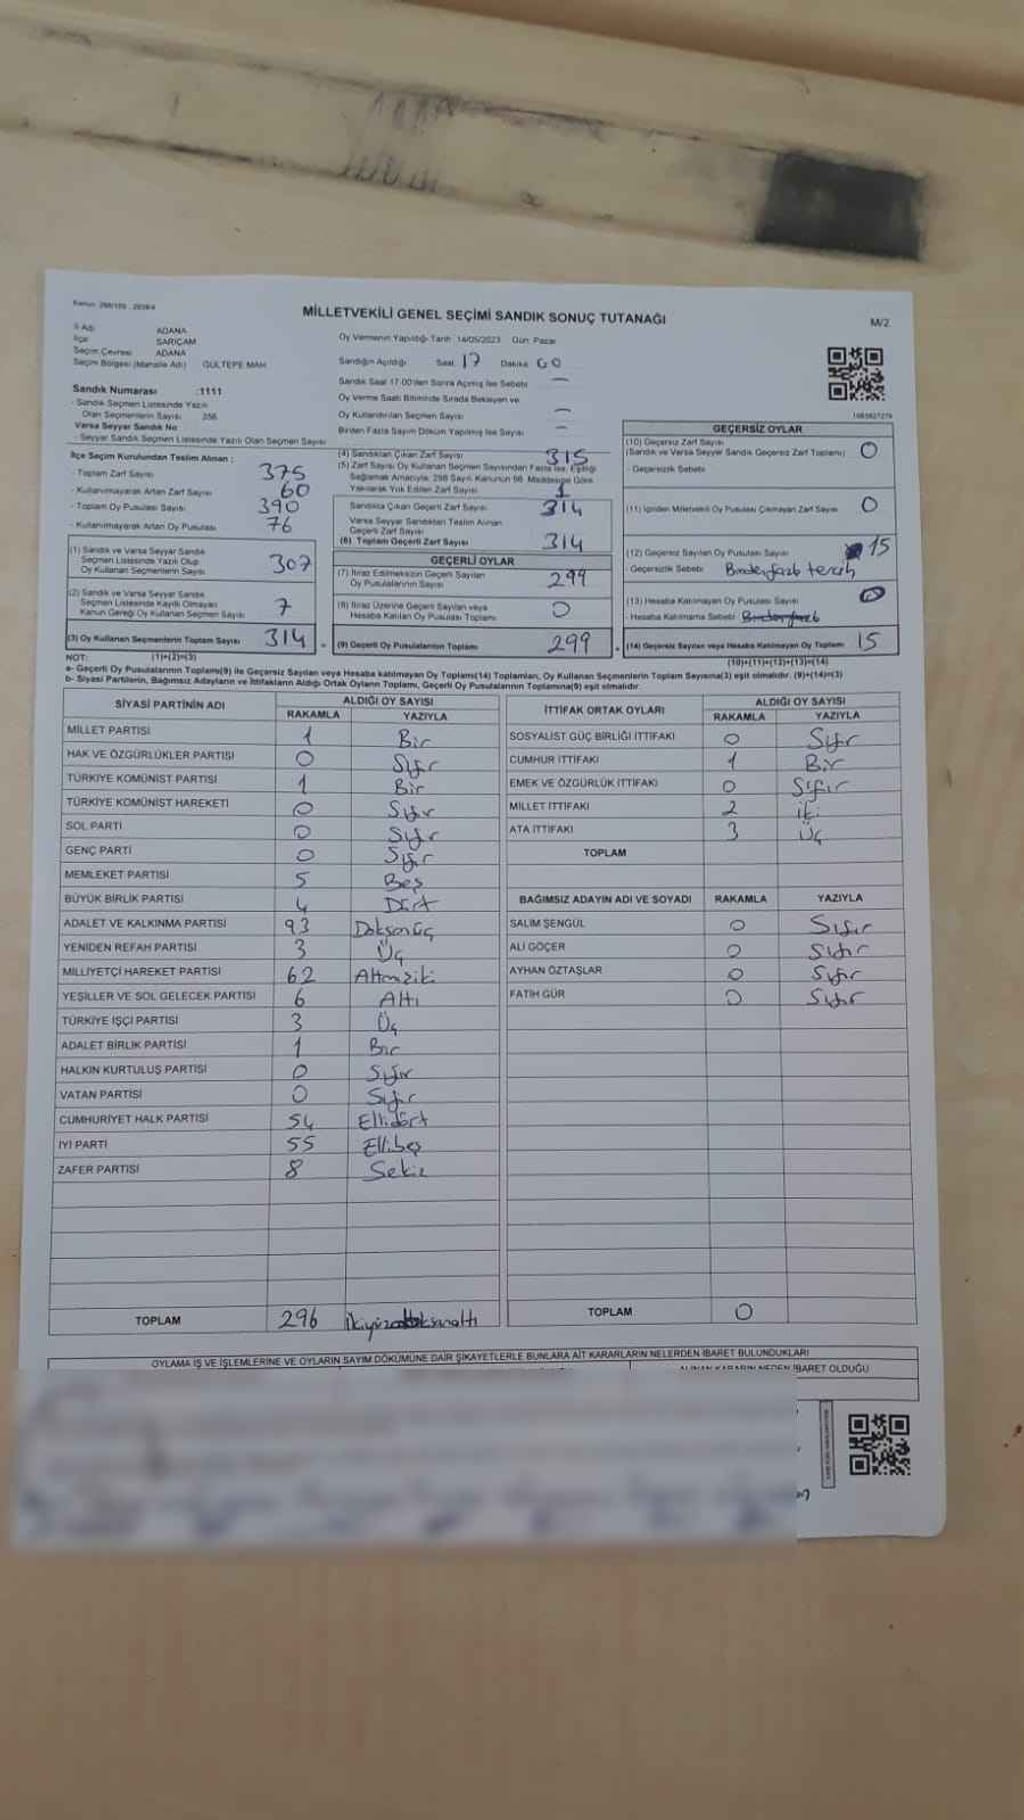 MİLLETVEKİLİ GENEL SEÇİMİ SANDIK SONUÇ TUTANAĞI
M/2
İl Adı ADANA
İlçe SARIÇAM
Seçim Çevresi ADANA
Seçim Bölgesi (Mahalle Adı) GÜLTEPE MAH
Oy Vermenin Yapıldığı Tarih 14/05/2023 Gün: Pazar
Sandığın Açıldığı Saat 17 Dakika 00
Sandık Saat 17:00'den Sonra Açılmış İse Sebebi —
Oy Verme Saati Bitiminde Sırada Bekleyen ve
Oy Kullandırılan Seçmen Sayısı —
Birden Fazla Sayım Döküm Yapılmış İse Sayısı —
Sandık Numarası :1111
- Sandık Seçmen Listesinde Yazılı
Olan Seçmenlerin Sayısı
Varsa Seyyar Sandık No
- Seyyar Sandık Seçmen Listesinde Yazılı Olan Seçmen Sayısı
İlçe Seçim Kurulundan Teslim Alınan ;
- Toplam Zarf Sayısı 375
- Kullanılmayarak Artan Zarf Sayısı 60
- Toplam Oy Pusulası Sayısı 390
- Kullanılmayarak Artan Oy Pusulası 76
(1) Sandık ve Varsa Seyyar Sandık
Seçmen Listesinde Yazılı Olup
Oy Kullanan Seçmenlerin Sayısı 307
(2) Sandık ve Varsa Seyyar Sandık
Seçmen Listesinde Kayıtlı Olmayan
Kanun Gereği Oy Kullanan Seçmen Sayısı 7
(3) Oy Kullanan Seçmenlerin Toplam Sayısı 314
(1)+(2)=(3)
(4) Sandıktan Çıkan Zarf Sayısı 315
(5) Zarf Sayısı Oy Kullanan Seçmen Sayısından Fazla İse, Eşitliği
Sağlamak Amacıyla, 298 Sayılı Kanunun 98. Maddesine Göre
Yakılarak Yok Edilen Zarf Sayısı 1
Sandıkta Çıkan Geçerli Zarf Sayısı 314
Varsa Seyyar Sandıktan Teslim Alınan
Geçerli Zarf Sayısı
(6) Toplam Geçerli Zarf Sayısı 314
GEÇERLİ OYLAR
(7) İtiraz Edilmeksizin Geçerli Sayılan
Oy Pusulalarının Sayısı 299
(8) İtiraz Üzerine Geçerli Sayılan veya
Hesaba Katılan Oy Pusulası Toplamı 0
(9) Geçerli Oy Pusulalarının Toplamı 299
GEÇERSİZ OYLAR
(10) Geçersiz Zarf Sayısı
(Sandık ve Varsa Seyyar Sandık Geçersiz Zarf Toplamı) 0
- Geçersizlik Sebebi
(11) İçinden Milletvekili Oy Pusulası Çıkmayan Zarf Sayısı 0
(12) Geçersiz Sayılan Oy Pusulası Sayısı 15
- Geçersizlik Sebebi Birden fazla tercih
(13) Hesaba Katılmayan Oy Pusulası Sayısı 0
- Hesaba Katılmama Sebebi Birden fazla
(14) Geçersiz Sayılan veya Hesaba Katılmayan Oy Toplamı 15
(10)+(11)+(12)+(13)=(14)
NOT:
a- Geçerli Oy Pusulalarının Toplamı(9) ile Geçersiz Sayılan veya Hesaba katılmayan Oy Toplamı(14) Toplamları, Oy Kullanan Seçmenlerin Toplam Sayısına(3) eşit olmalıdır. (9)+(14)=(3)
b- Siyasi Partilerin, Bağımsız Adayların ve İttifakların Aldığı Ortak Oyların Toplamı, Geçerli Oy Pusulalarının Toplamına(9) eşit olmalıdır.
SİYASİ PARTİNİN ADI ALDIĞI OY SAYISI
RAKAMLA YAZIYLA
MİLLET PARTİSİ 1 Bir
HAK VE ÖZGÜRLÜKLER PARTİSİ 0 Sıfır
TÜRKİYE KOMÜNİST PARTİSİ 1 Bir
TÜRKİYE KOMÜNİST HAREKETİ 0 Sıfır
SOL PARTİ 0 Sıfır
GENÇ PARTİ 0 Sıfır
MEMLEKET PARTİSİ 5 Beş
BÜYÜK BİRLİK PARTİSİ 4 Dört
ADALET VE KALKINMA PARTİSİ 93 Doksanüç
YENİDEN REFAH PARTİSİ 3 Üç
MİLLİYETÇİ HAREKET PARTİSİ 62 Altmışiki
YEŞİLLER VE SOL GELECEK PARTİSİ 6 Altı
TÜRKİYE İŞÇİ PARTİSİ 3 Üç
ADALET BİRLİK PARTİSİ 1 Bir
HALKIN KURTULUŞ PARTİSİ 0 Sıfır
VATAN PARTİSİ 0 Sıfır
CUMHURİYET HALK PARTİSİ 54 Ellidört
İYİ PARTİ 55 Ellibeş
ZAFER PARTİSİ 8 Sekiz
TOPLAM 296 ikiyüzdoksanaltı
İTTİFAK ORTAK OYLARI ALDIĞI OY SAYISI
RAKAMLA YAZIYLA
SOSYALİST GÜÇ BİRLİĞİ İTTİFAKI 0 Sıfır
CUMHUR İTTİFAKI 1 Bir
EMEK VE ÖZGÜRLÜK İTTİFAKI 0 Sıfır
MİLLET İTTİFAKI 2 iki
ATA İTTİFAKI 3 Üç
TOPLAM
BAĞIMSIZ ADAYIN ADI VE SOYADI RAKAMLA YAZIYLA
SALİM ŞENGÜL 0 Sıfır
ALİ GÖÇER 0 Sıfır
AYHAN ÖZTAŞLAR 0 Sıfır
FATİH GÜR 0 Sıfır
TOPLAM 0
OYLAMA İŞ VE İŞLEMLERİNE VE OYLARIN SAYIM DÖKÜMÜNE DAİR ŞİKAYETLERLE BUNLARA AİT KARARLARIN NELERDEN İBARET BULUNDUKLARI
ALINAN KARARIN NEDEN İBARET OLDUĞU